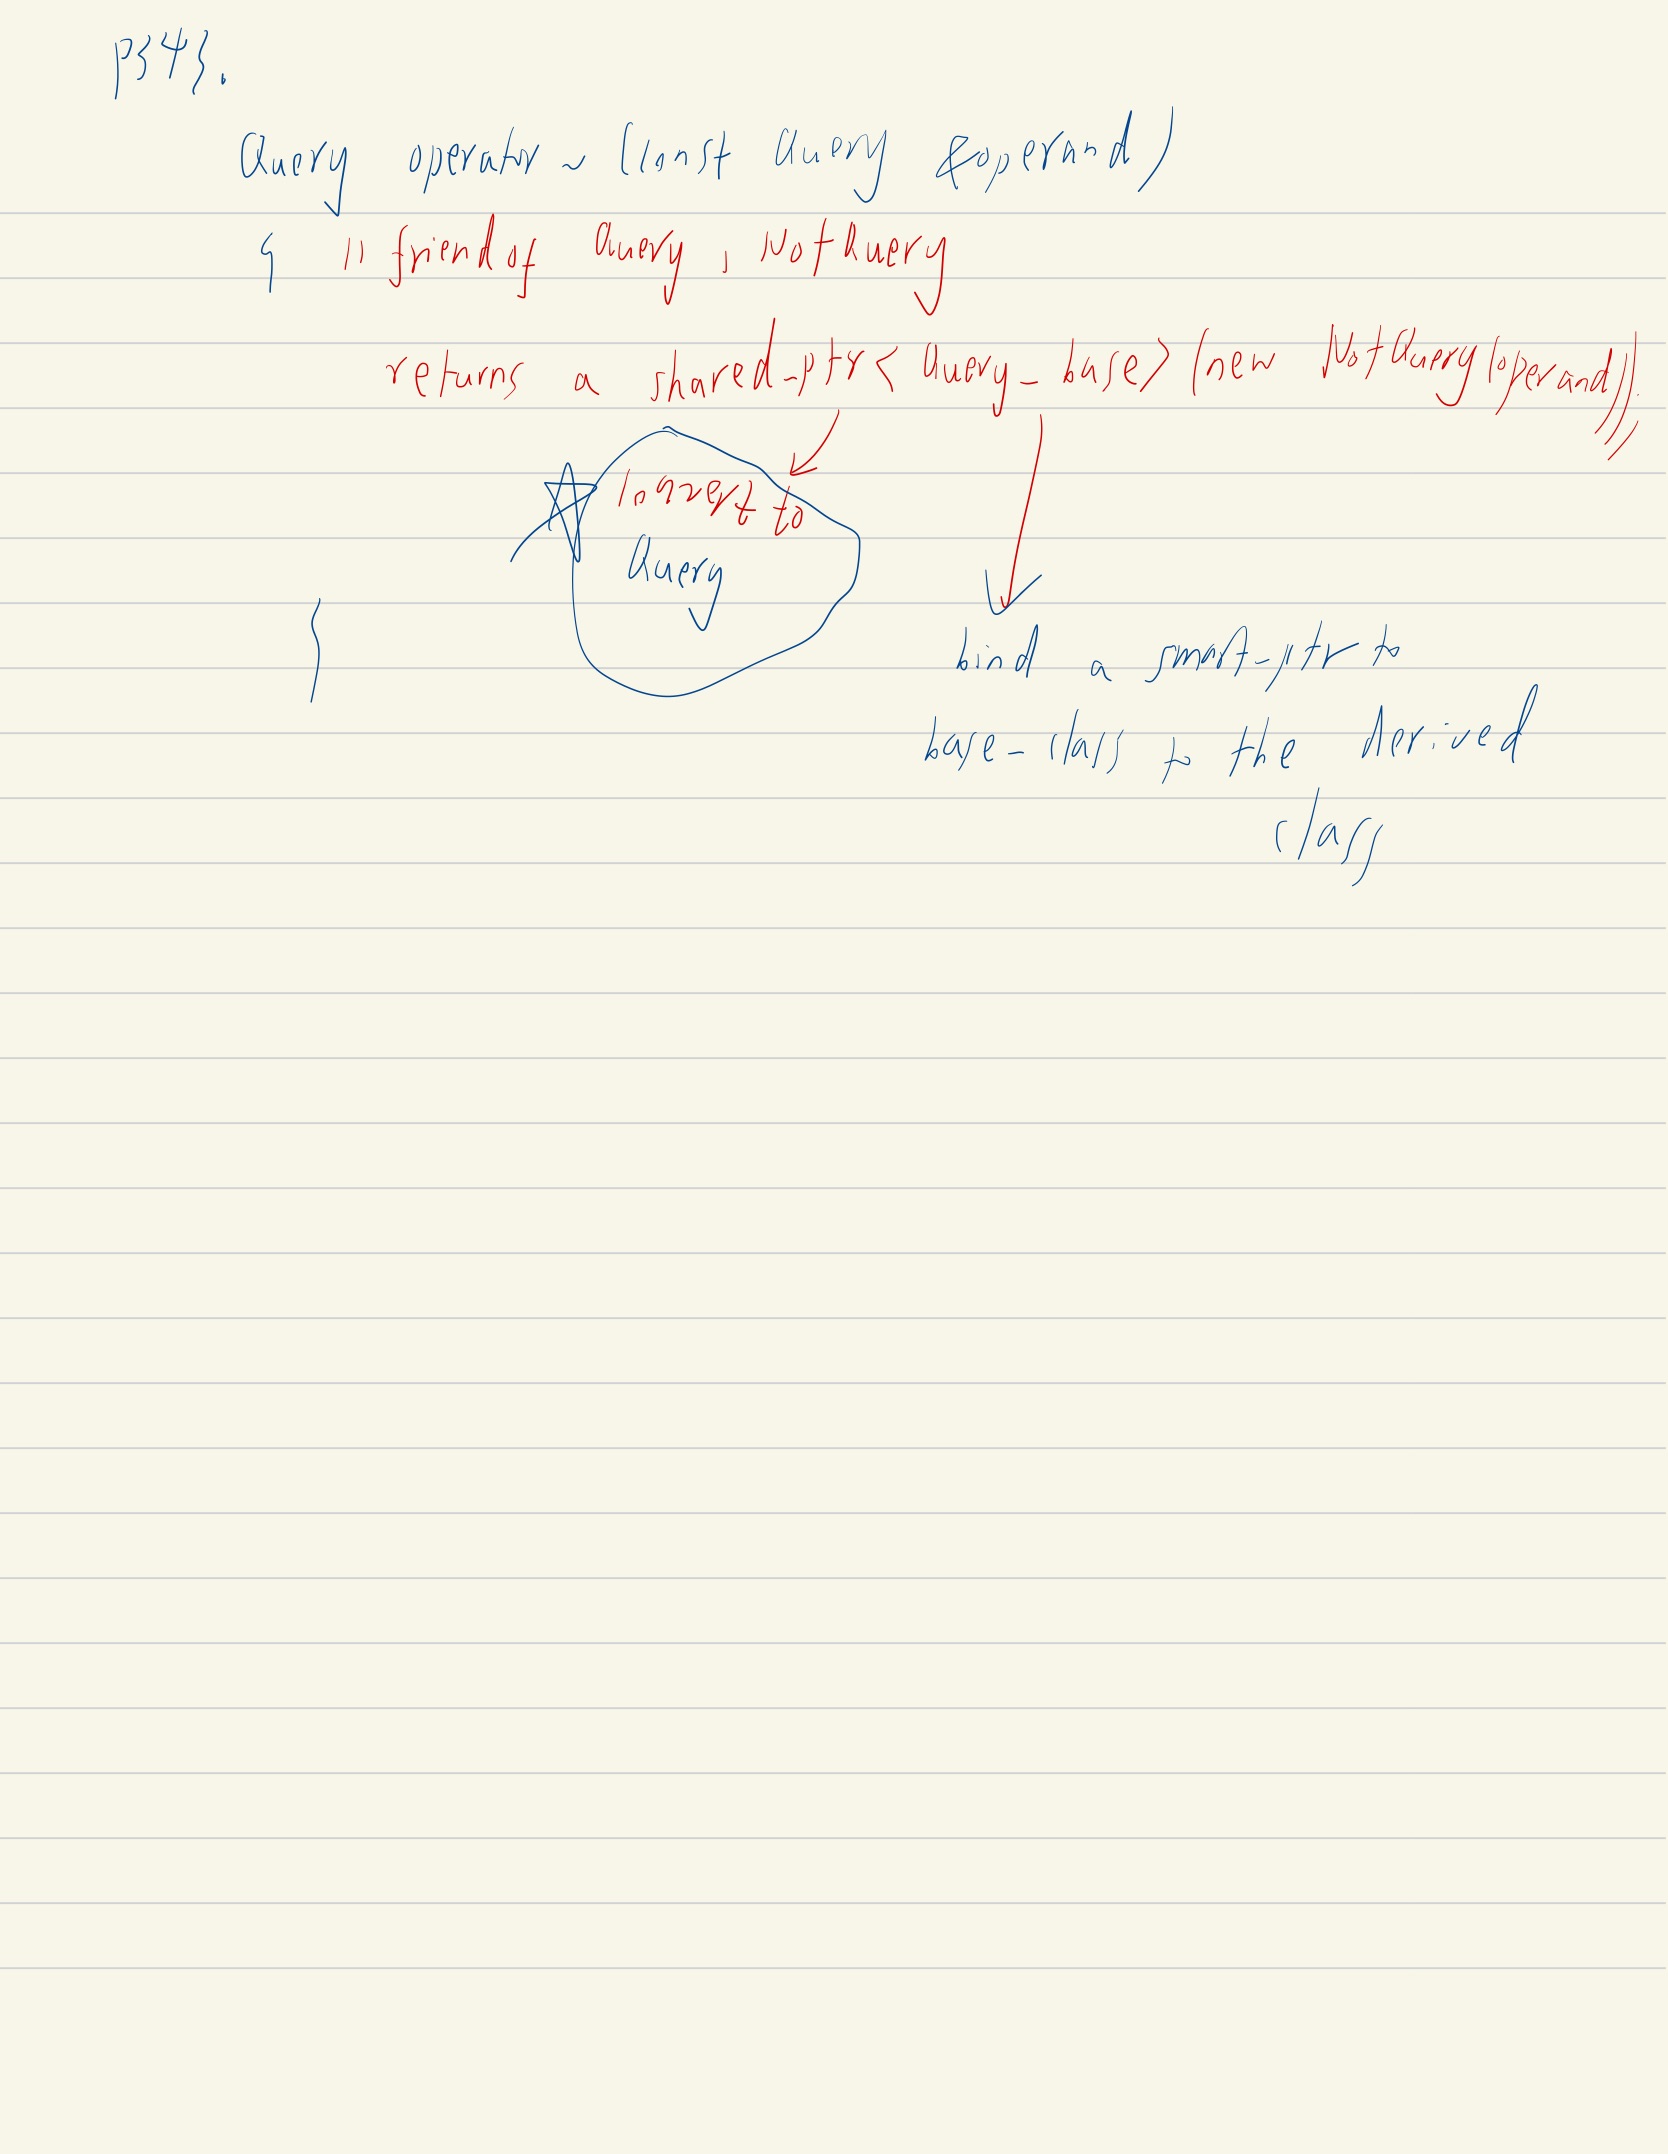 P343.
Query operator ~ (const Query &operand)
{ // friend of Query, NotQuery
returns a shared_ptr< Query_base> (new NotQuery(operand)));
convert to
Query
}
bind a smart-ptr to
base-class to the derived
class